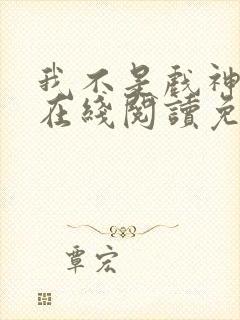 我不是戲神
在綫閱讀免
覃宏